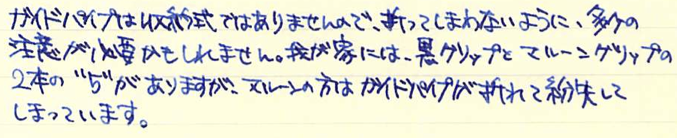 ガイドパイプは収納式ではありませんので、折ってしまわないように、多少の
注意が必要かもしれません。我が家には、黒グリップとマルーングリップの
2本の"5"がありますが、マルーンの方はガイドパイプが折れて紛失して
しまっています。